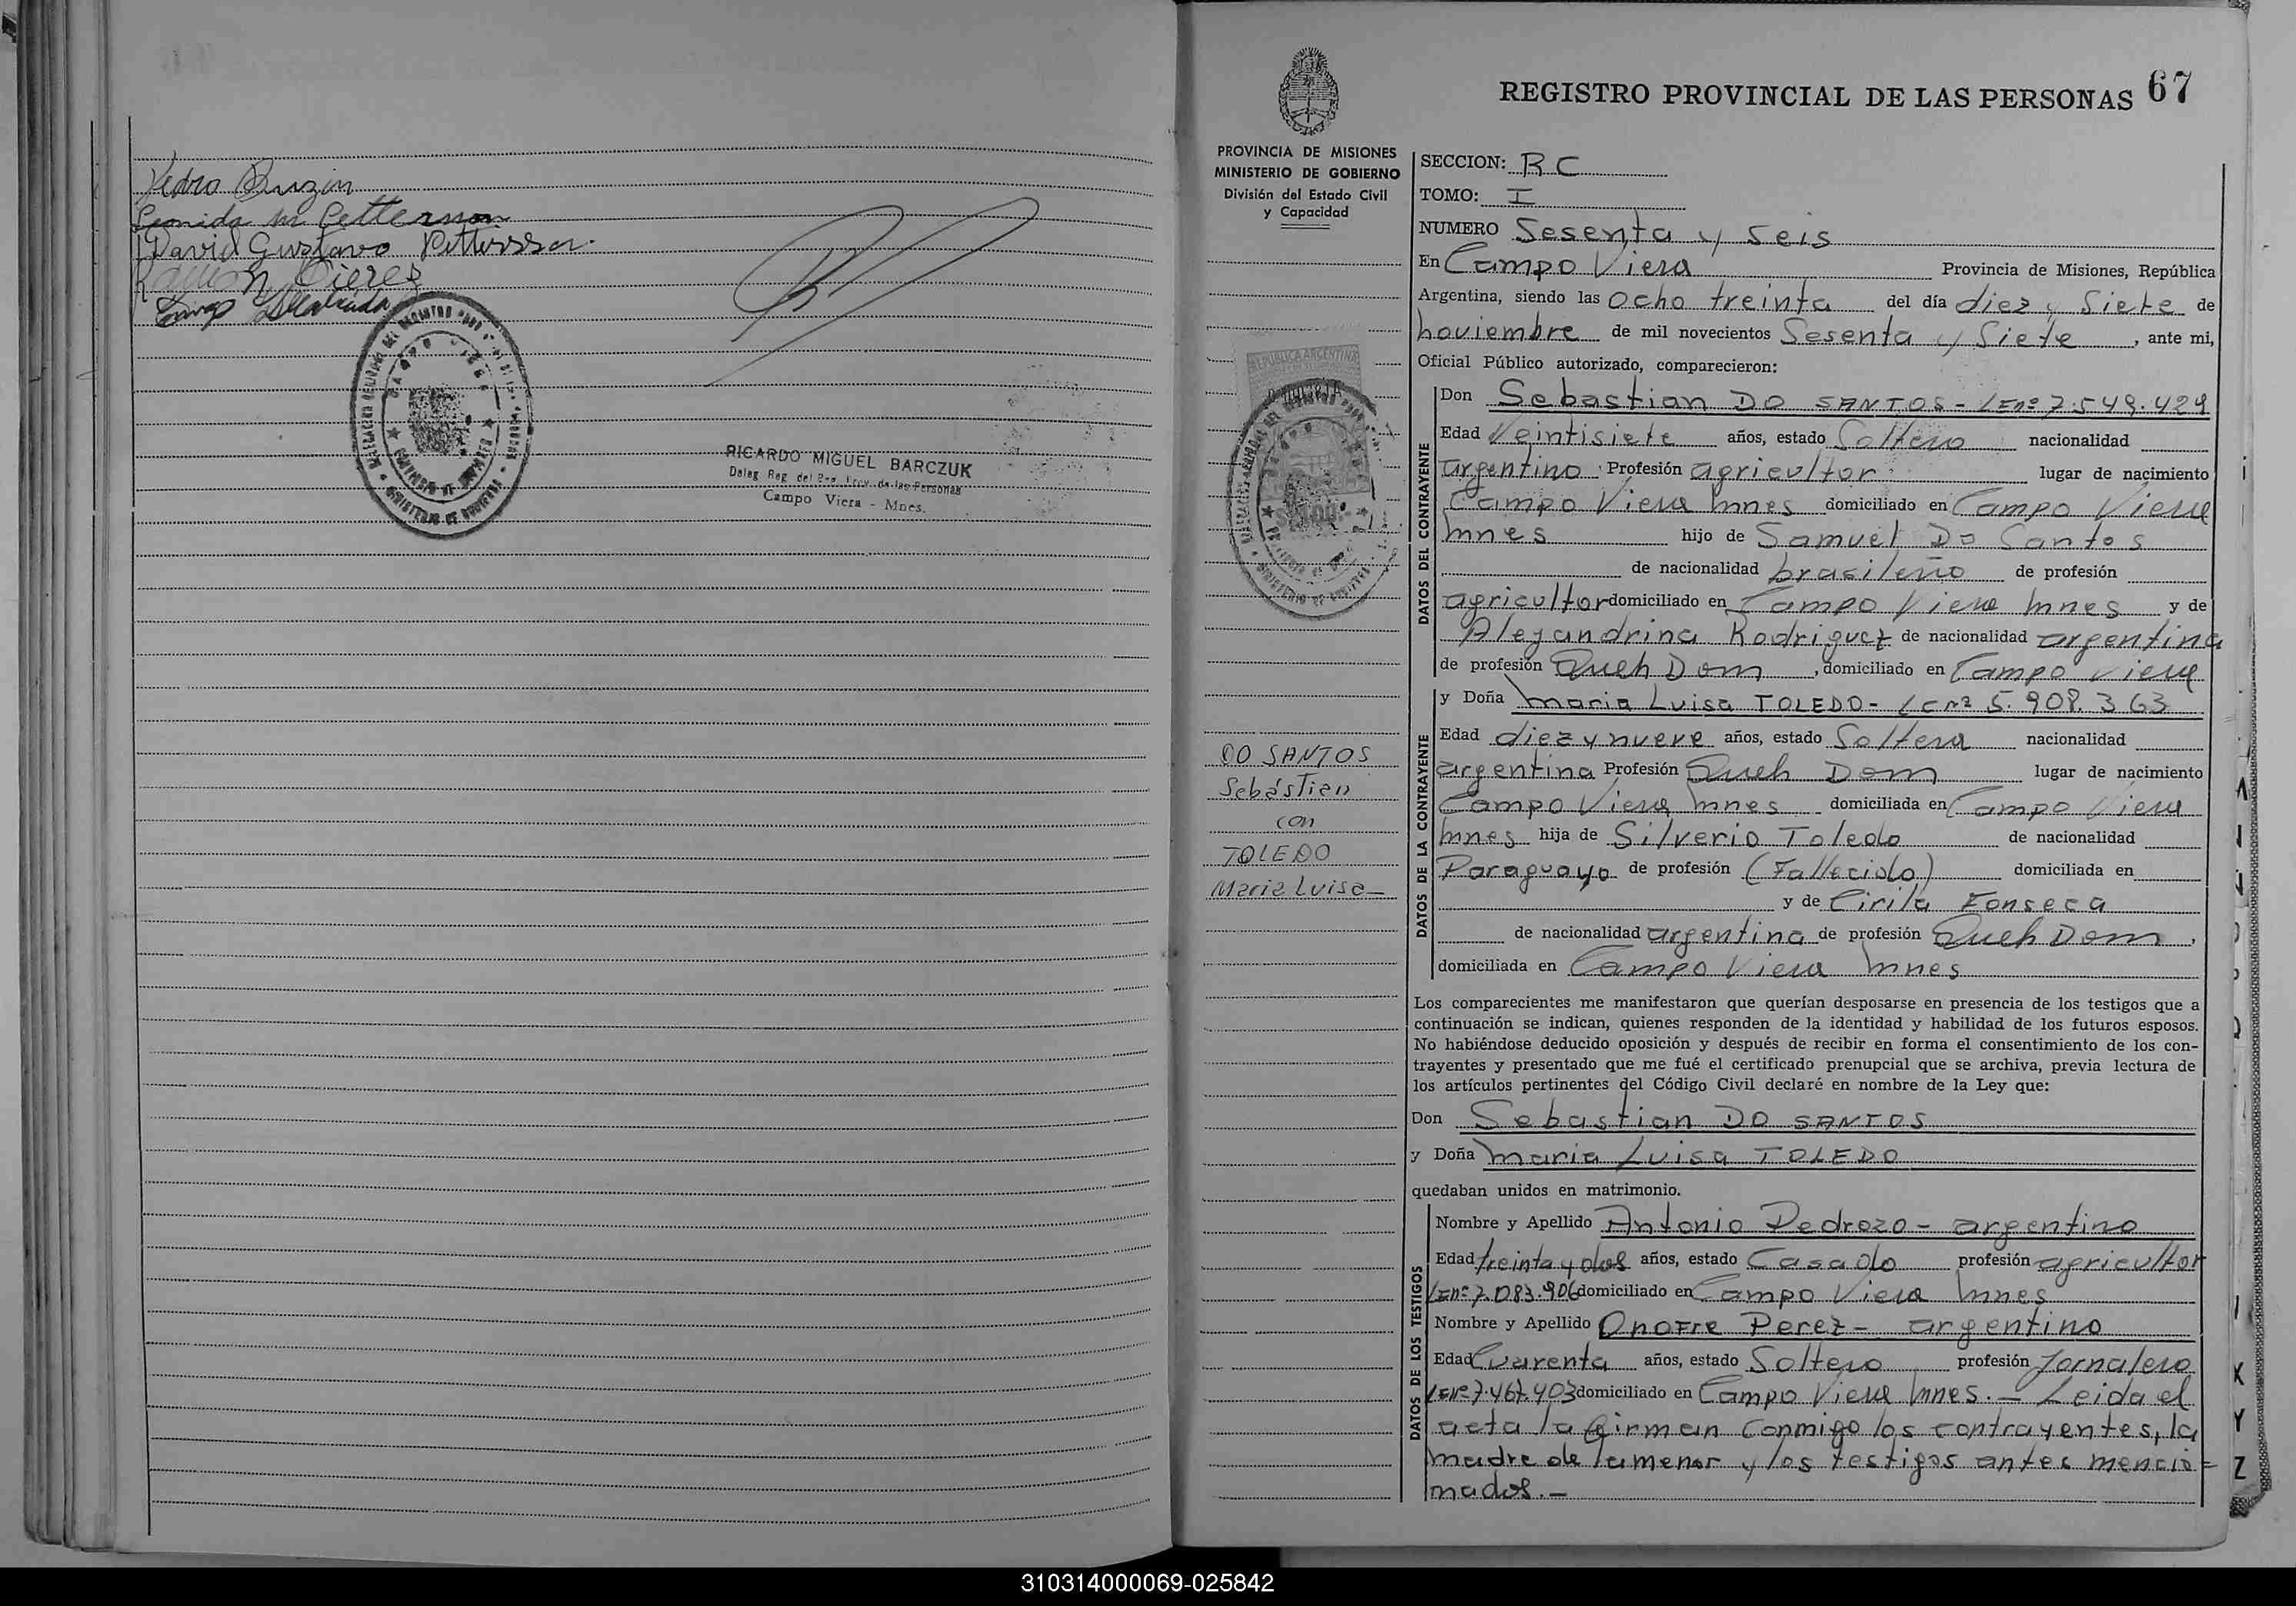 Pedro Buzin
David Gustavo Pettersson.
Ramón Pieres
RICARDO MIGUEL BARCZUK
Deleg. Reg. del Reg. Prov. de las Personas
Campo Viera - Mnes.
REGISTRO PROVINCIAL DE LAS PERSONAS 67
PROVINCIA DE MISIONES
MINISTERIO DE GOBIERNO
División del Estado Civil
y Capacidad
REPUBLICA ARGENTINA
DO SANTOS
Sebástien
con
TOLEDO
Maria Luisa
SECCION: RC
TOMO: I
NUMERO Sesenta y seis
En Campo Viera Provincia de Misiones, República
Argentina, siendo las ocho treinta del día diez y Siete de
noviembre de mil novecientos Sesenta y Siete, ante mi,
Oficial Público autorizado, comparecieron:
DATOS DEL CONTRAYENTE
Don Sebastian DO SANTOS - LEnº 7.549.429
Edad Veintisiete años, estado Soltero nacionalidad
argentino Profesión agricultor lugar de nacimiento
Campo Viera Mnes domiciliado en Campo Viera
Mnes hijo de Samuel Do Santos
de nacionalidad brasilero de profesión
agricultor domiciliado en Campo Viera Mnes y de
Aleyandrina Rodriguez de nacionalidad argentina
de profesión Queh Dom, domiciliado en Campo Viera
DATOS DE LA CONTRAYENTE
y Doña Maria Luisa TOLEDO - LCnº 5.908.363
Edad diez y nueve años, estado Soltera nacionalidad
argentina Profesión Queh Dom lugar de nacimiento
Campo Viera Mnes domiciliada en Campo Viera
Mnes hija de Silverio Toledo de nacionalidad
Paraguayo de profesión (Fallecido) domiciliada en
y de Cirila Fonseca
de nacionalidad argentina de profesión Queh Dom,
domiciliada en Campo Viera Mnes
Los comparecientes me manifestaron que querían desposarse en presencia de los testigos que a
continuación se indican, quienes responden de la identidad y habilidad de los futuros esposos.
No habiéndose deducido oposición y después de recibir en forma el consentimiento de los con-
trayentes y presentado que me fué el certificado prenupcial que se archiva, previa lectura de
los artículos pertinentes del Código Civil declaré en nombre de la Ley que:
Don Sebastian DO SANTOS
y Doña Maria Luisa TOLEDO
quedaban unidos en matrimonio.
DATOS DE LOS TESTIGOS
Nombre y Apellido Antonio Pedrozo - argentino
Edad treinta y dos años, estado Casado profesión agricultor
LEnº 7.083.906 domiciliado en Campo Viera Mnes
Nombre y Apellido Onofre Perez - argentino
Edad Cuarenta años, estado Soltero profesión Jornalero
LEnº 7.467.403 domiciliado en Campo Viera Mnes. - Leida el
acta la firman conmigo los contrayentes, la
madre de la menor y los testigos antes mencio=
nados. -
310314000069-025842